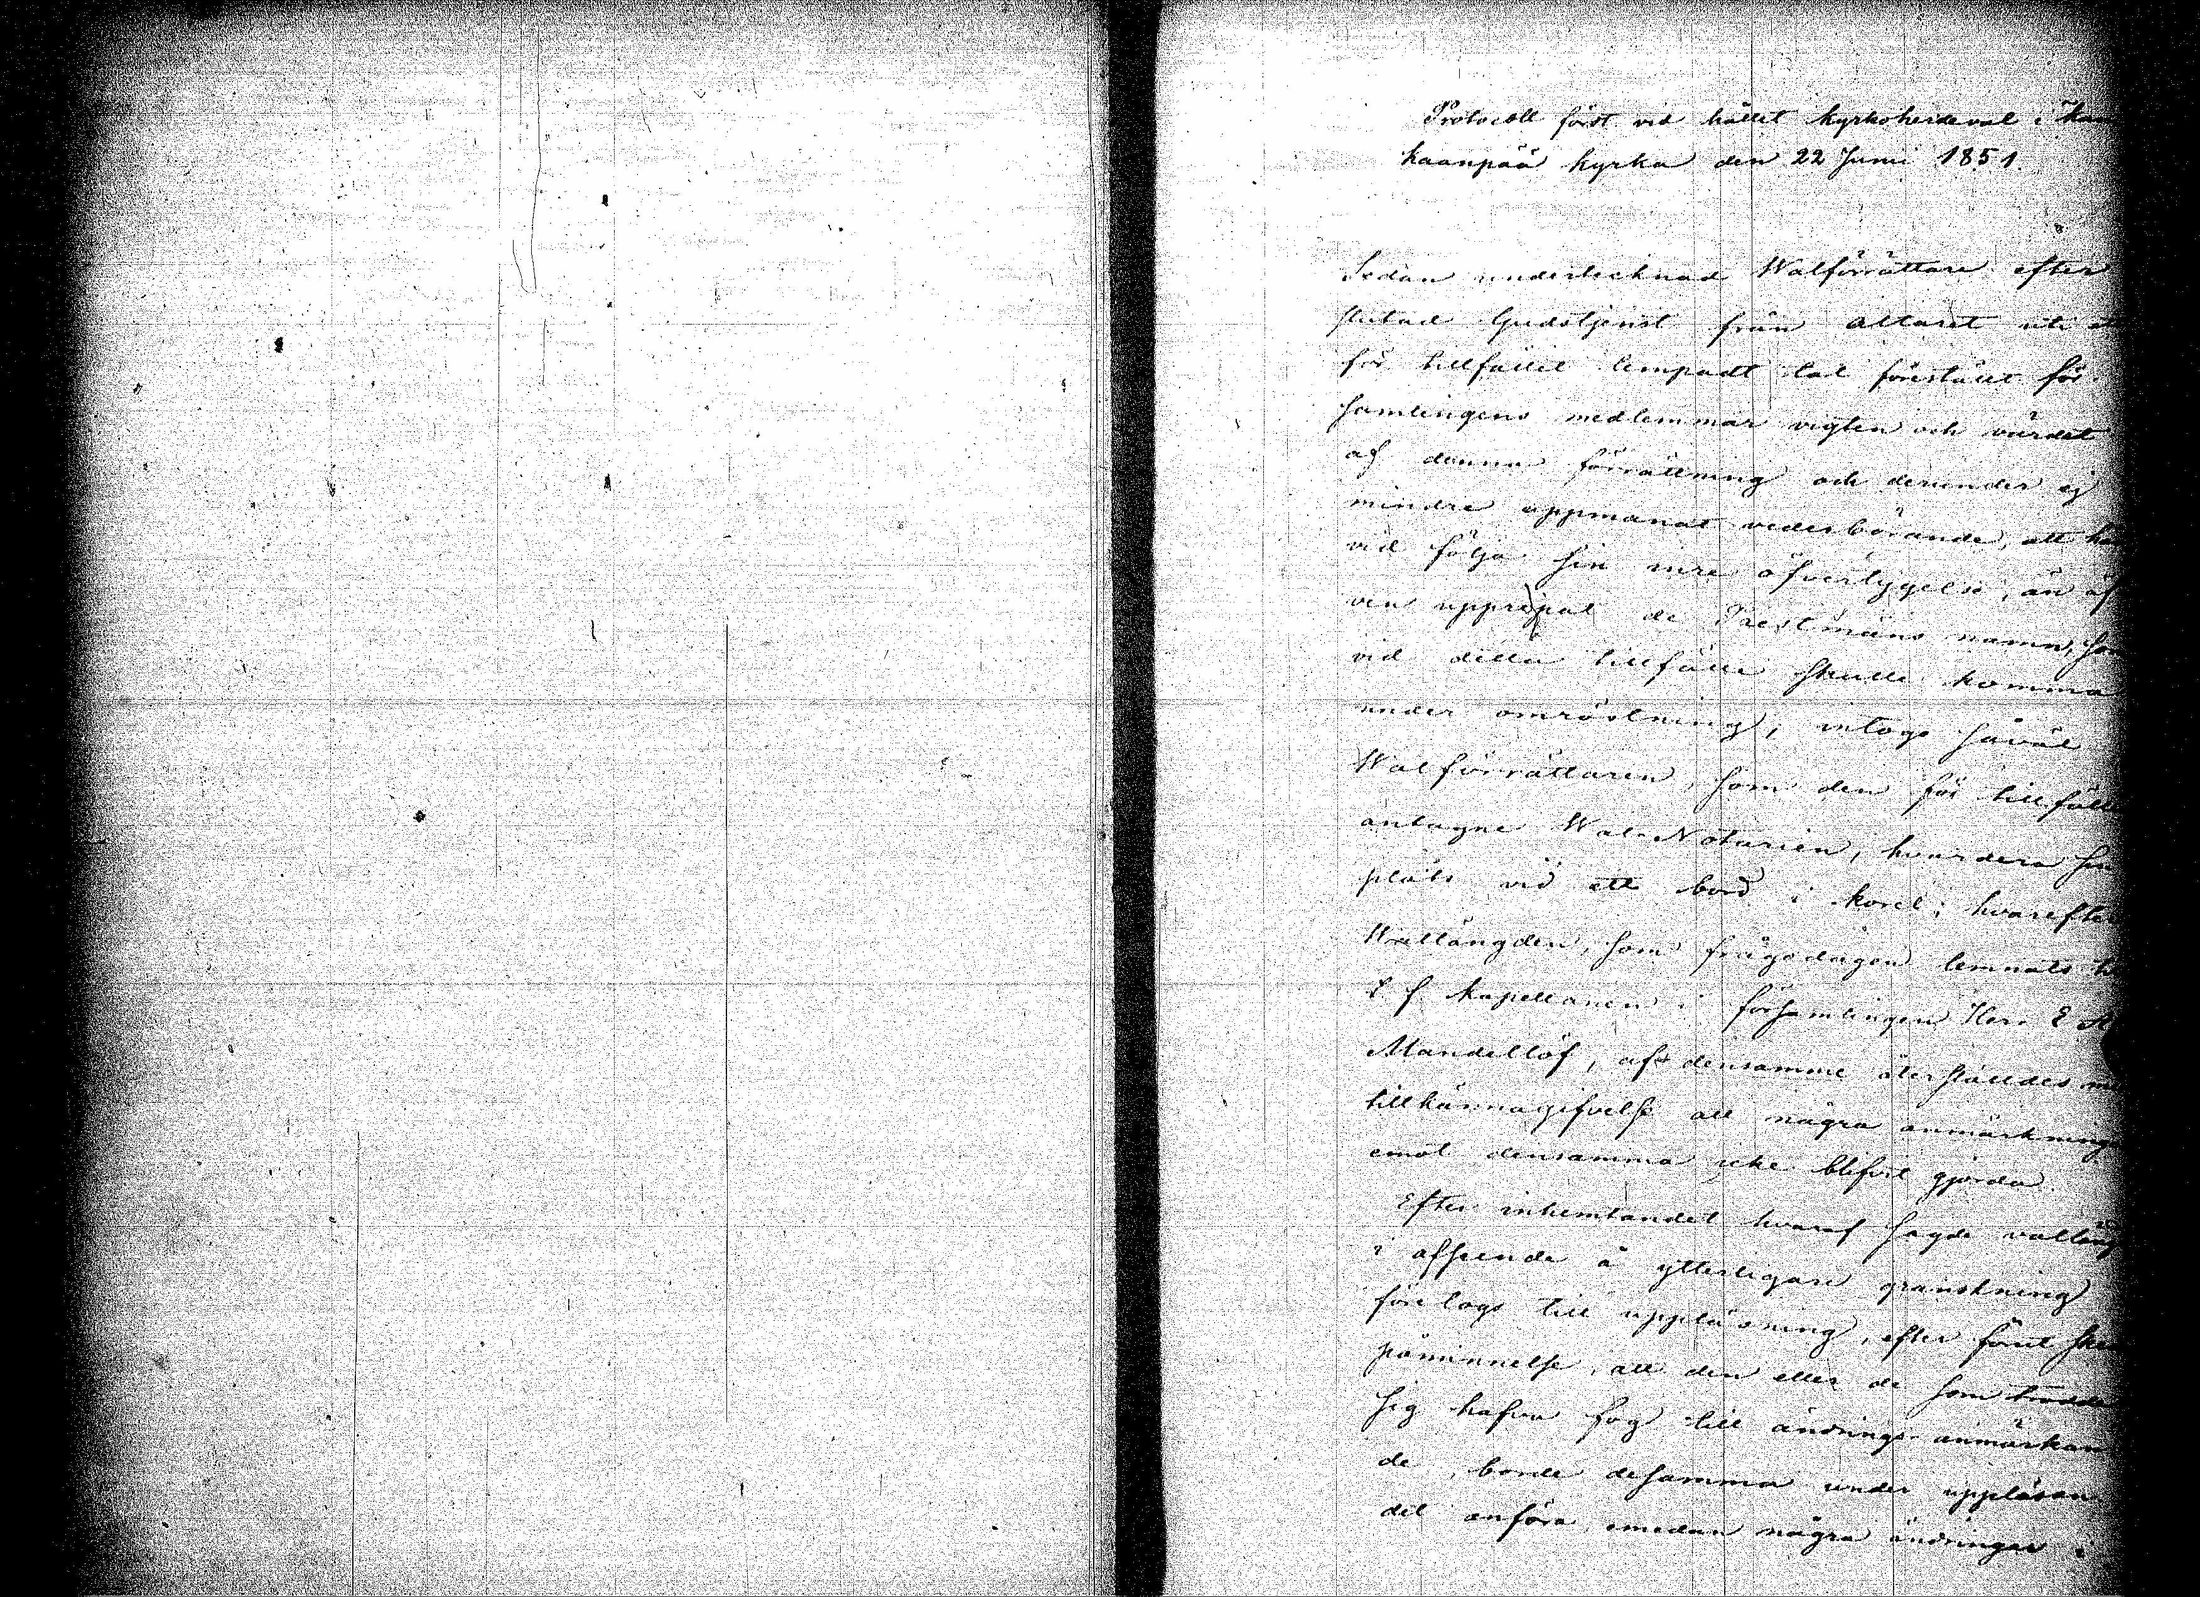 Protocoll fördt vid hållet kyrkoherdeval i Kan
kaanpää kyrka den 22 Juni 1851.
Sedan undertecknad Walförrättare efter
slutad Gudstjenst från altaret uti ett
för tillfället lempadt tal föreställt för-
samlingens medlemmar vigten och värdet
af denna förrättning och derunder ej
mindre uppmanat vederbörande, att här
vid följa sin inre öfvertygelse, än äf
ven uppropat de Prestmäns namn, som
vid detta tillfälle skulle komma
under omröstning; intogs såväl
Walförrättaren, som den för tillfälle
antagne Wal-Notarien, hvardera sin
plats vid ett bord i koret; hvarefter
Wallängden, som frågodagen lemnats
t. f. Kapellanen i församlingen Herr E
Mandellöf, af densamme återställdes
tillkännagifvelse att några anmärkning
emot densamma icke blifvit gjorda.
Efter inhemtandet hvaraf sagde vallängd
i afseende å ytterligare granskning
företogs till uppläsning, efter förut sked
påminnelse, att den eller de som trodde
sig hafva fog till ändrings anmärkan
de, borde desamma under uppläsan
det anföra, emedan några ändringar i